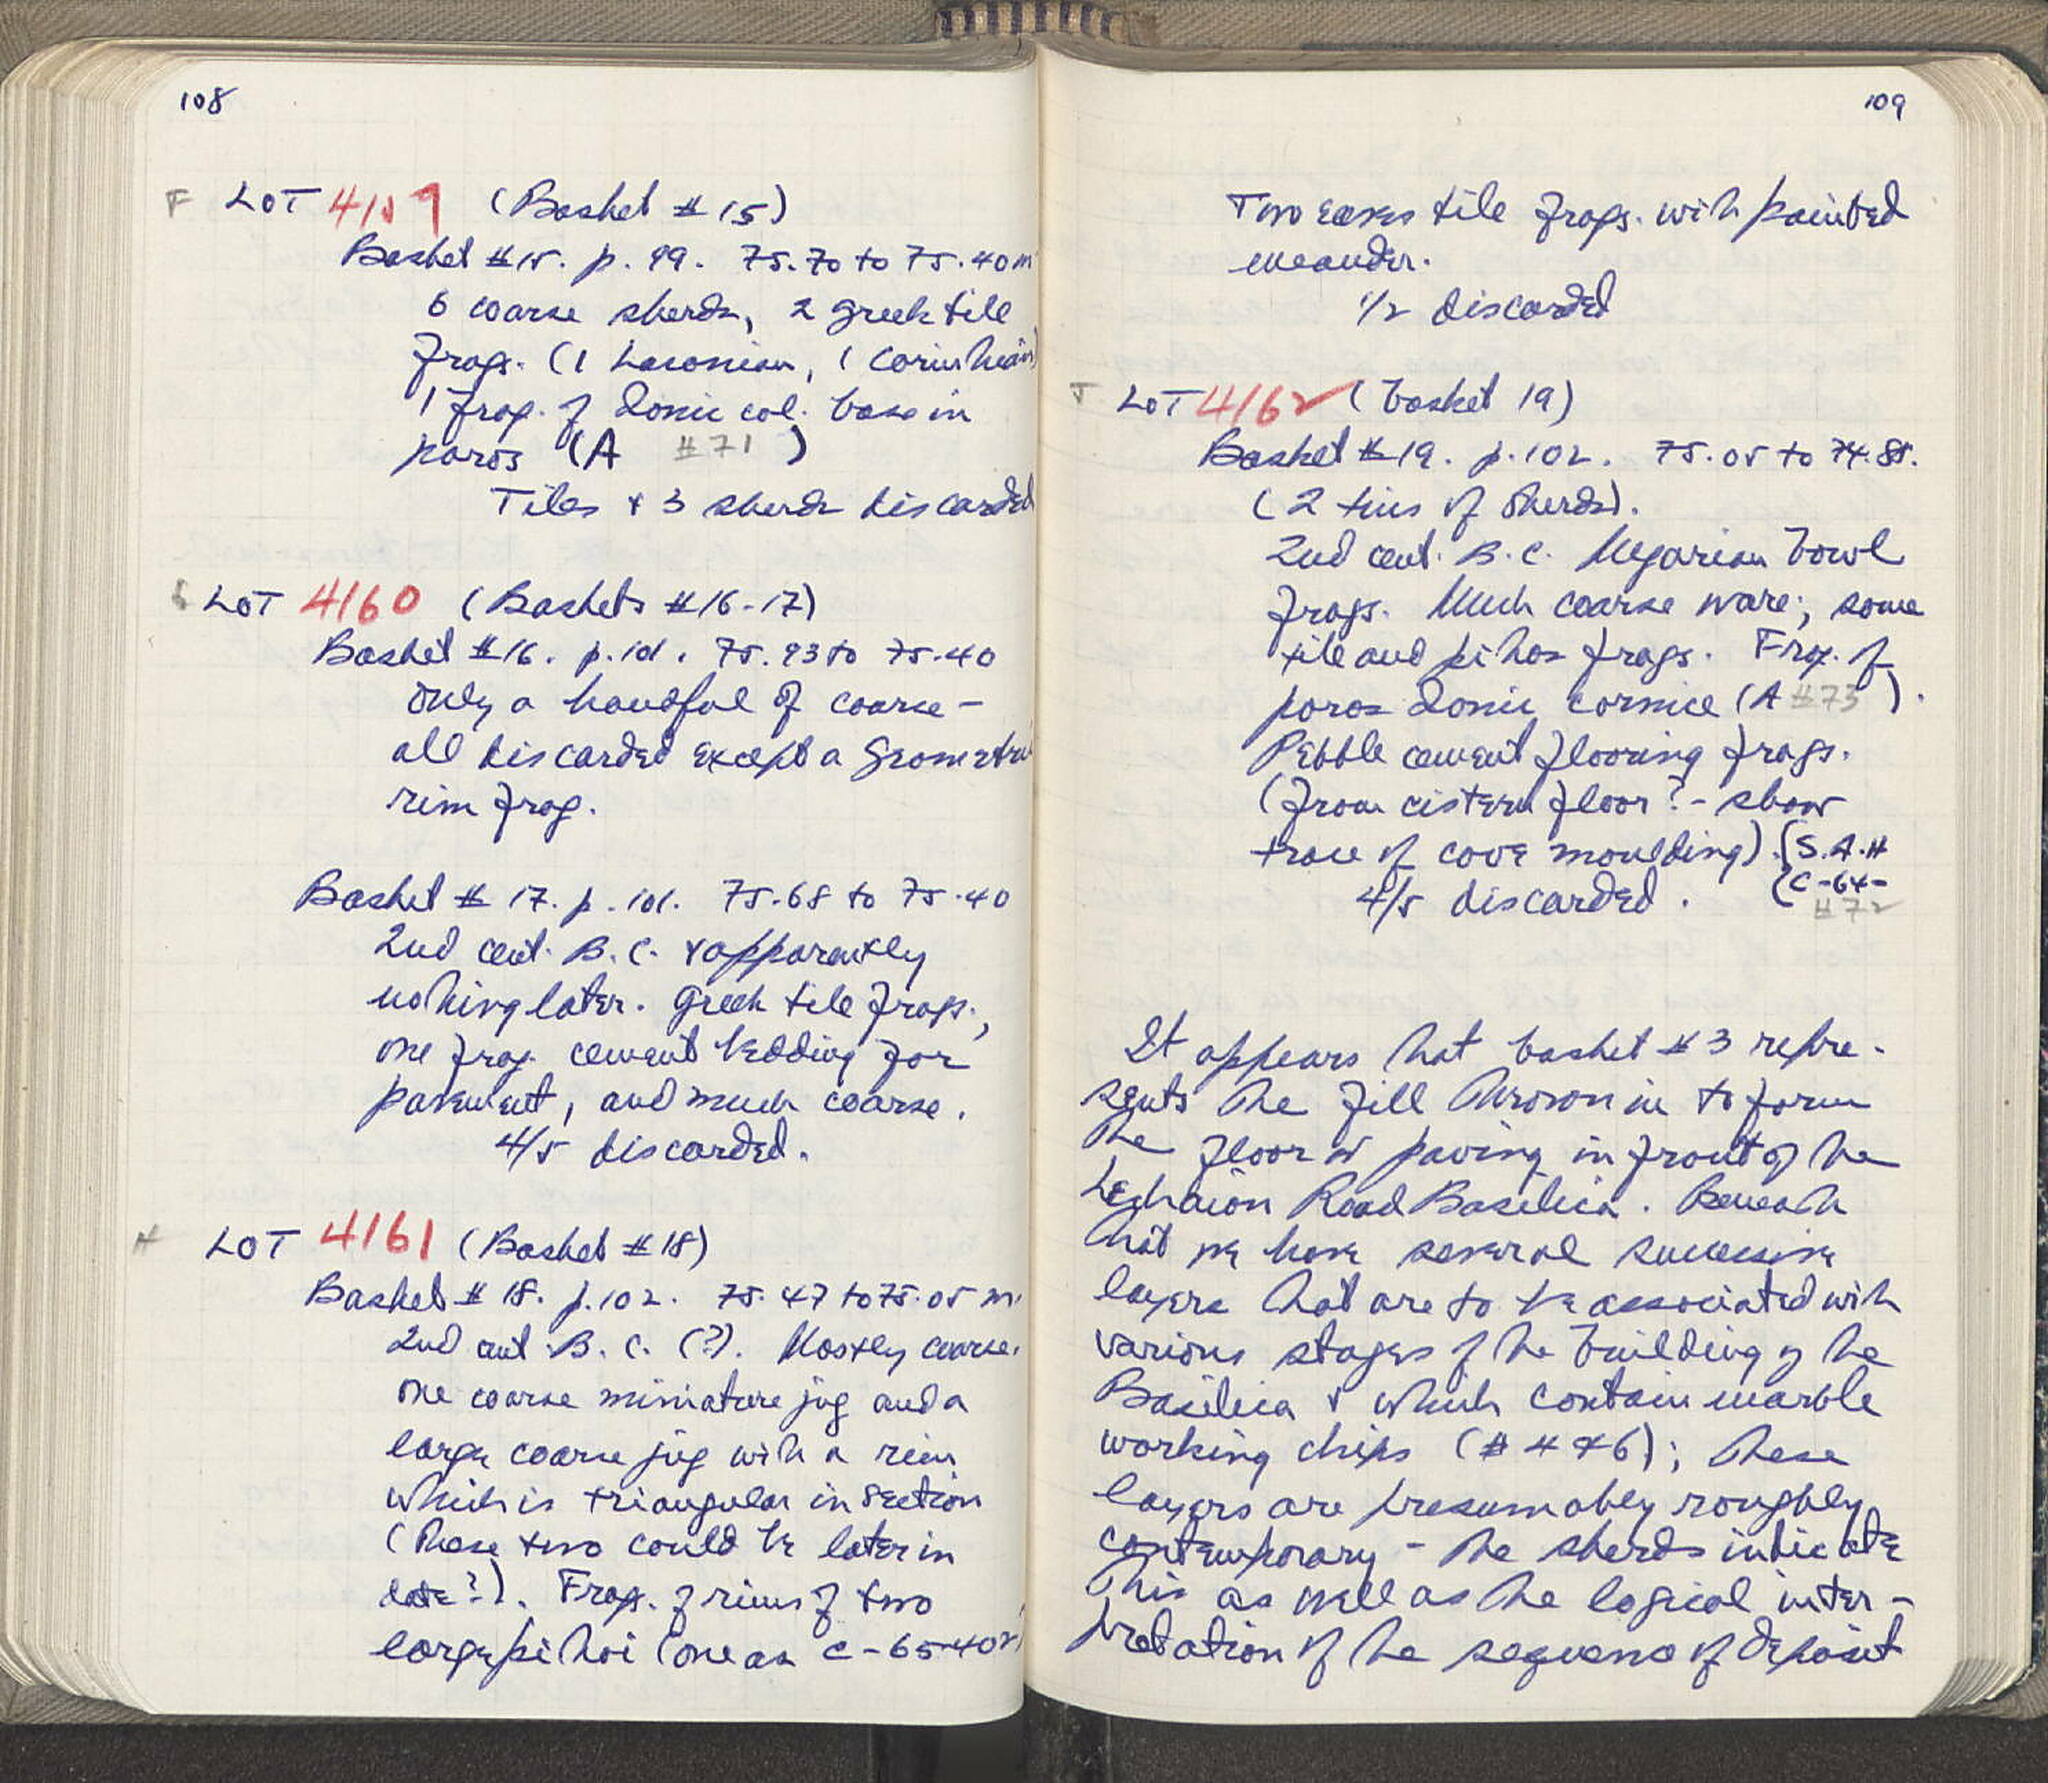 108
F LOT 4159 (Basket #15)
Basket #15. p. 99. 75.70 to 75.40 m
6 coarse sherds, 2 greek tile
frags. (1 Laconian, 1 Corinthian)
1 frag. of Ionic col. base in
poros (A #71)
Tiles + 3 sherds discarded
LOT 4160 (Baskets #16-17)
Basket #16. p.101. 75.93 to 75.40
Only a handful of coarse -
all discarded except a Geometric
rim frag.
Basket # 17. p. 101. 75.68 to 75.40
2nd cent. B.C. & apparently
nothing later. Greek tile frags.,
one frag. cement bedding for
pavement, and much coarse.
4/5 discarded.
H LOT 4161 (Basket #18)
Basket # 18. p.102. 75.47 to 75.05 m.
2nd cent. B.C. (?). Mostly coarse.
One coarse miniature jug and a
large coarse jug with a rim
which is triangular in section
(These two could be later in
date?). Frags. of rims of two
large pithoi (one as C-65-402)
109
Two eaves tile frags. with painted
meander.
1/2 discarded
LOT 4162 (basket 19)
Basket #19. p.102. 75.05 to 74.85.
(2 tins of sherds).
2nd cent. B.C. Megarian bowl
frags. Much coarse ware; some
tile and pithos frags. Frag. of
poros Ionic cornice (A #73).
Pebble cement flooring frags.
(from cistern floor? - show
trace of cove moulding). (S.A.H
4/5 discarded. (C-64-
#72
It appears that basket #3 repre-
sents the fill thrown in to form
the floor or paving in front of the
Lechaion Road Basilica. Beneath
that we have several successive
layers that are to be associated with
various stages of the building of the
Basilica & which contain marble
working chips (#4 & 6); these
layers are presumably roughly
contemporary - the sherds indicate
this as well as the logical inter-
pretation of the sequence of deposit